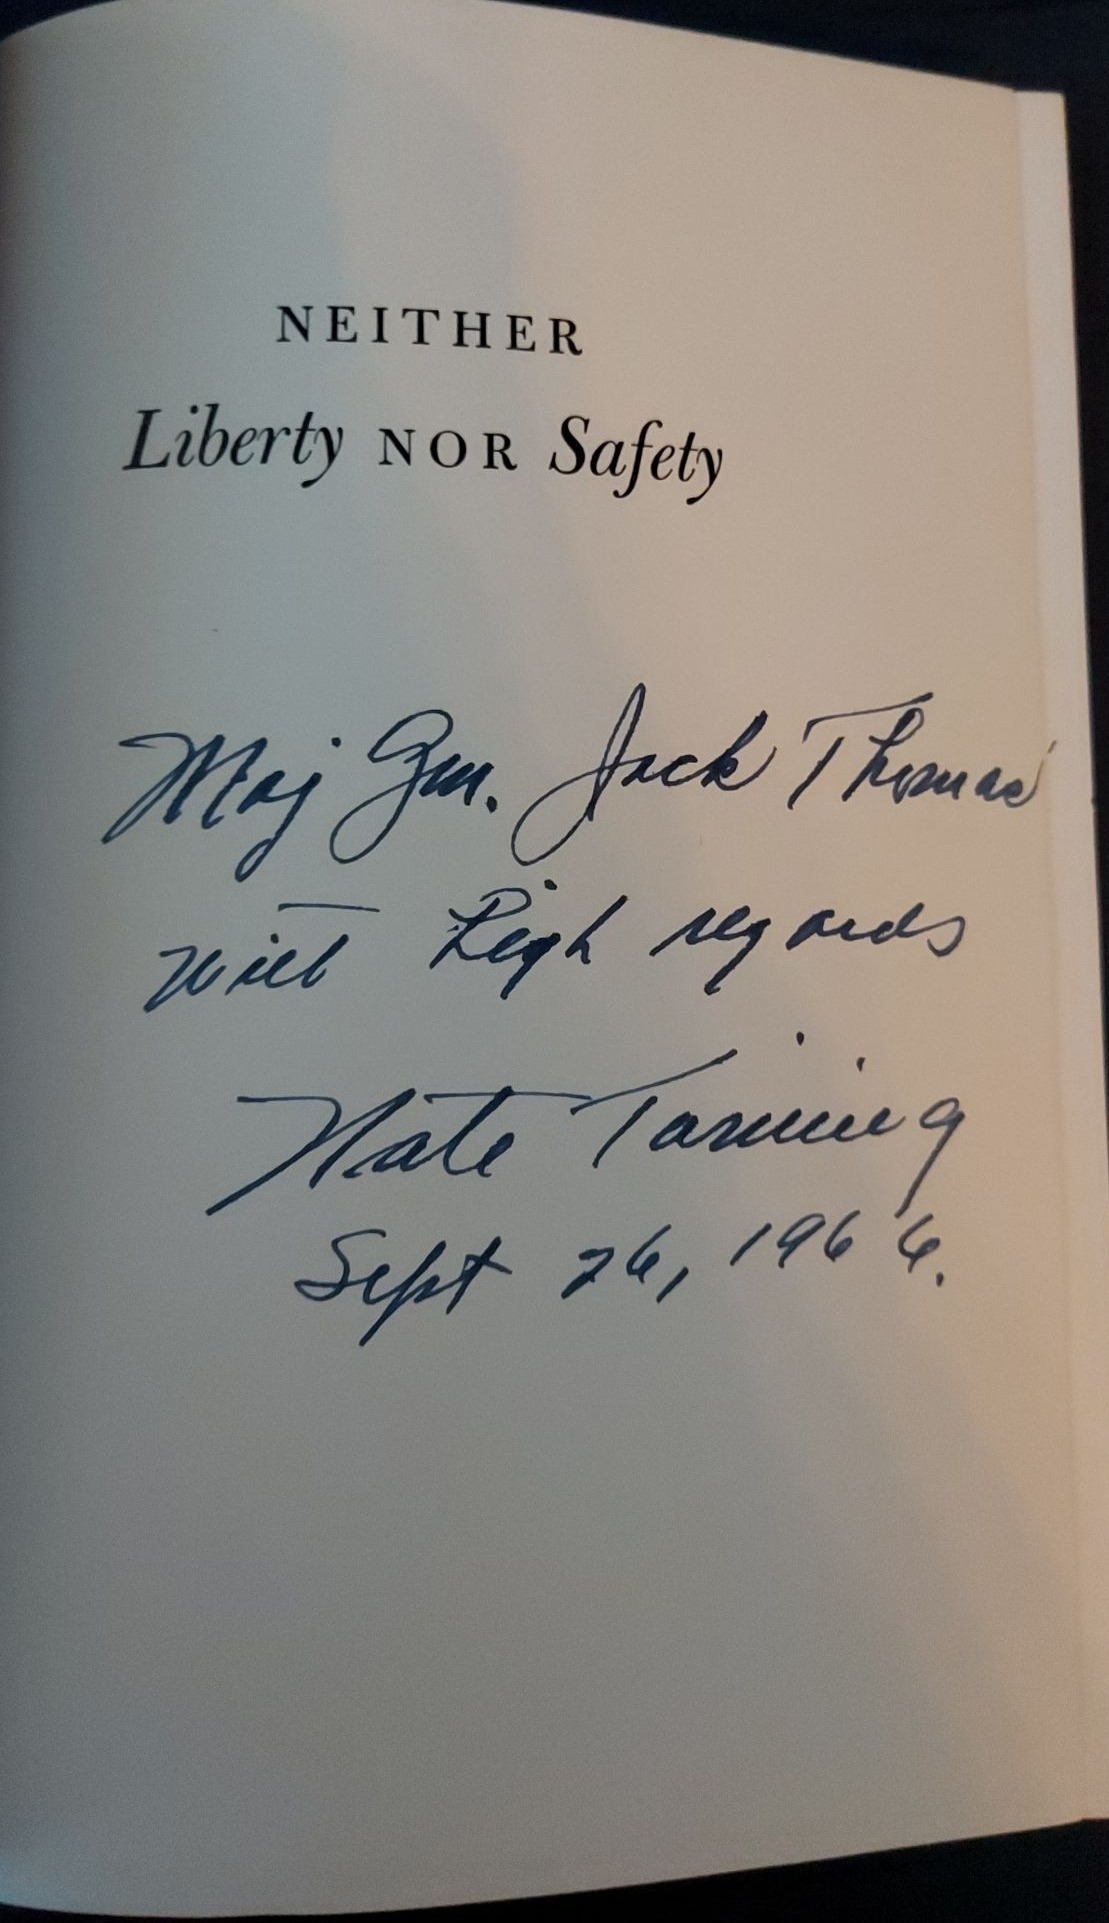 NEITHER
Liberty NOR Safety
Maj Gen. Jack Thomas
with high regards
Nate Twining
Sept 26, 1966.